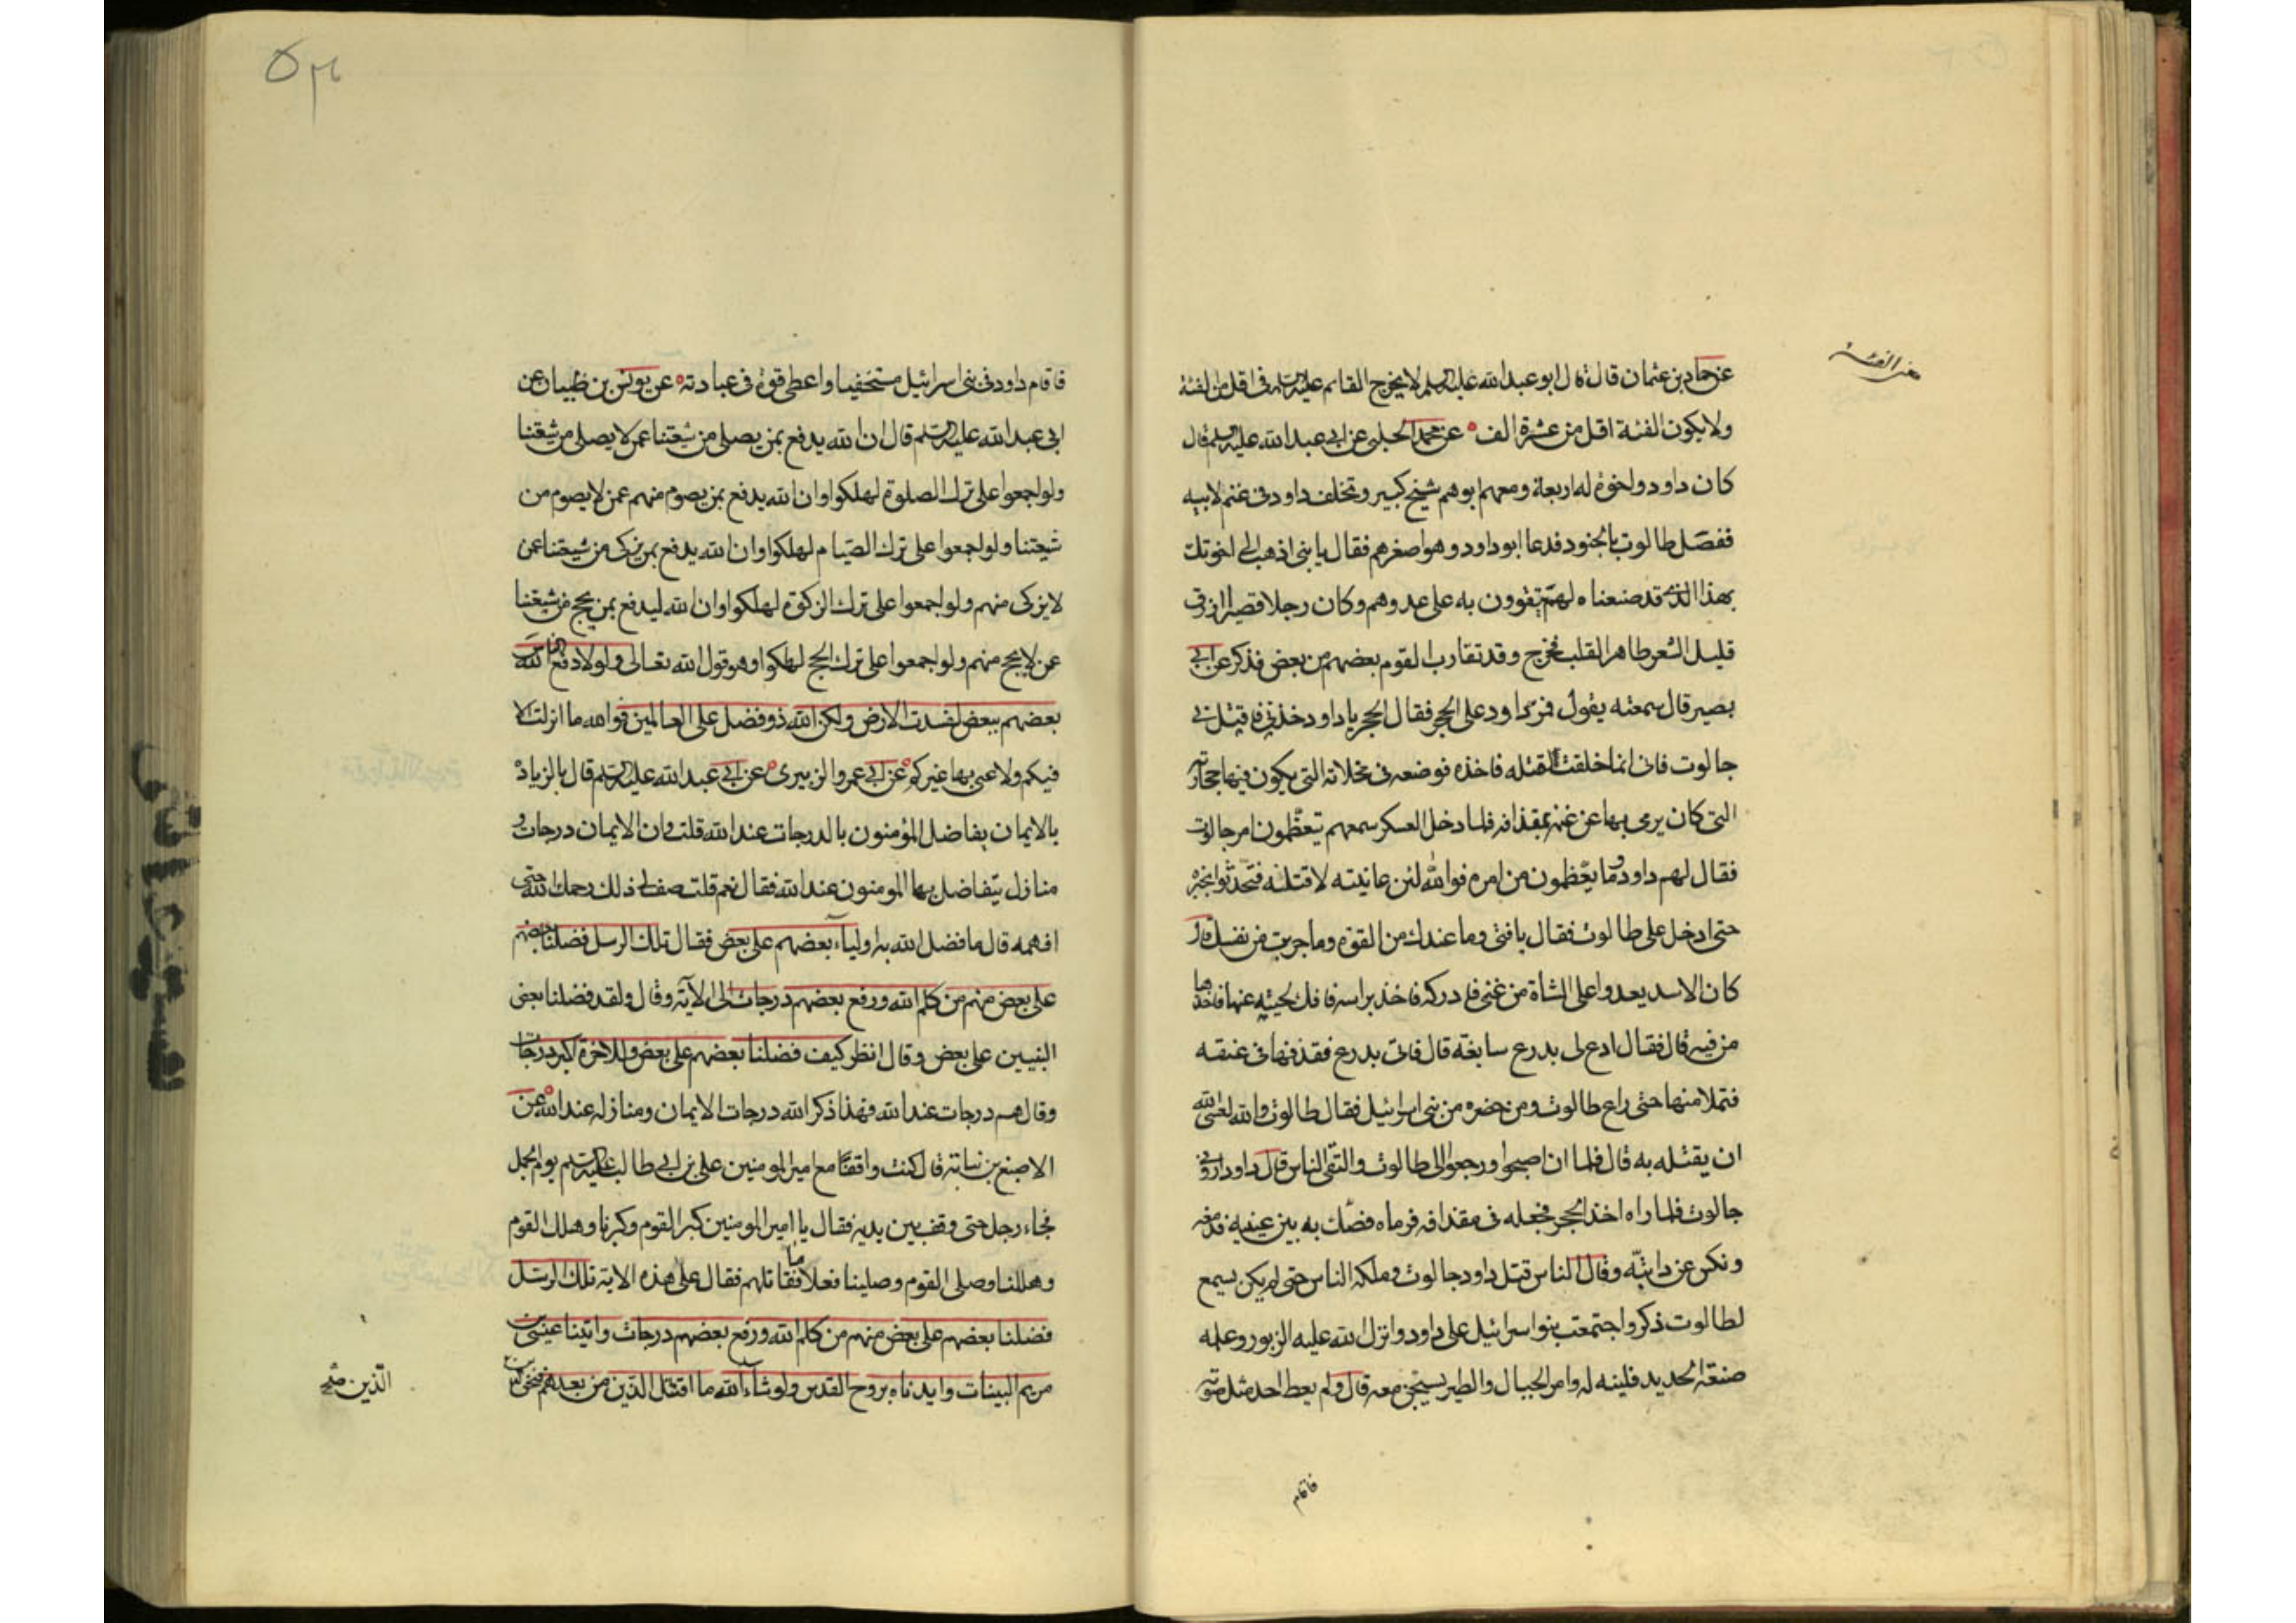 معنى الفئة
عن حماد بن عثمان قال قال ابو عبد الله عليه السلم لا يخرج القائم عليه السلم فى اقل من الفئة
ولا يكون الفئة اقل من عشرة الف عن محمد الحلبى عن ابى عبد الله عليه السلم قال
كان داود واخوة له اربعة ومعهم ابوهم شيخ كبير وتخلف داود فى غنم لابيه
ففصل طالوت بالجنود فدعا ابو داود وهو اصغرهم فقال يا بنى اذهب الى اخوتك
بهذا الذى قد صنعناه لهم يتقوون به على عدوهم وكان رجلا قصيرا ازرق
قليل الشعر طاهر القلب فخرج وقد تقارب القوم بعضهم من بعض فذكر عن ابى
بصير قال سمعته يقول فمر داود على الحجر فقال الحجر يا داود خذنى فاقتل بى
جالوت فانى انما خلقت لقتله فاخذه فوضعه فى مخلاته التى يكون فيها حجارته
التى كان يرمى بها عن غنمه بمقذافه فلما دخل العسكر سمعهم يتعظمون امر جالوت
فقال لهم داود وما يعظمون من امره فوالله لئن عاينته لاقتلنه فتحدثوا بخبره
حتى ادخل على طالوت فقال يا فتى وما عندك من القوة وما جربت من نفسك قال
كان الاسد يعدوا على الشاة من غنمى فادركه فاخذ براسه فافك لحييه عنها فاخذها
من فيه قال فقال ادع لى بدرع سابغة قال فاتى بدرع فقذفها فى عنقه
فتملا منها حتى راع طالوت ومن حضره من بنى اسرائيل فقال طالوت والله لعسى الله
ان يقتله به قال فلما ان اصبحوا ورجعوا الى طالوت والتقى الناس قال داود ارونى
جالوت فلما راه اخذ الحجر فجعله فى مقذافه فرماه فصك به بين عينيه فدمغه
ونكس عن دابته وقال الناس قتل داود جالوت وملكه الناس حتى لم يكن يسمع
لطالوت ذكر واجتمعت بنوا سرائيل على داود وانزل الله عليه الزبور وعلمه
صنعة الحديد فلينه له وامر الجبال والطير يسبحن معه قال ولم يعط احد مثل صوته
فاقام
فاقام داود فى بنى اسرائيل مستخفيا واعطى قوة فى عبادته عن يونس بن ظبيان عن
ابى عبد الله عليه السلم قال ان الله يدفع بمن يصلى من شيعتنا عمن لا يصلى من شيعتنا
ولو اجمعوا على ترك الصلوة لهلكوا وان الله يدفع بمن يصوم منهم عمن لا يصوم من
شيعتنا ولو اجمعوا على ترك الصيام لهلكوا وان الله يدفع بمن يزكى من شيعتنا عمن
لا يزكى منهم ولو اجمعوا على ترك الزكوة لهلكوا وان الله ليدفع بمن يحج من شيعتنا
عمن لا يحج منهم ولو اجمعوا على ترك الحج لهلكوا وهو قول الله تعالى ولولا دفع الله الناس
بعضهم ببعض لفسدت الارض ولكن الله ذو فضل على العالمين فوالله ما انزلت الا
فيكم ولا عنى بها غيركم عن ابى عمرو الزبيرى عن ابى عبد الله عليه السلم قال بالزيادة
بالايمان يفاضل المؤمنون بالدرجات عند الله قلت وان الايمان درجات و
منازل يتفاضل بها المومنون عند الله فقال نعم قلت صف لى ذلك رحمك الله حتى
افهمه قال ما فضل الله به اولياءه بعضهم على بعض فقال تلك الرسل فضلنا بعضهم
على بعض منهم من كلم الله ورفع بعضهم درجات الى الآية وقال ولقد فضلنا بعض
النبيين على بعض وقال انظر كيف فضلنا بعضهم على بعض وللاخرة اكبر درجات
وقال هم درجات عند الله فهذا ذكر الله درجات الايمان ومنازله عند الله عن
الاصبغ بن نباتة قال كنت واقفا مع امير المومنين على بن ابى طالب عليه السلم يوم الجمل
فجاء رجل حتى وقف بين يديه فقال يا امير المومنين كبر القوم وكبرنا وهلل القوم
وهللنا وصلى القوم وصلينا فعلا ما نقاتلهم فقال على هذه الاية تلك الرسل
فضلنا بعضهم على بعض منهم من كلم الله ورفع بعضهم درجات واتينا عيسى بن
مريم البينات وايدناه بروح القدس ولو شاء الله ما اقتتل الذين من بعدهم فنحن
الذين من